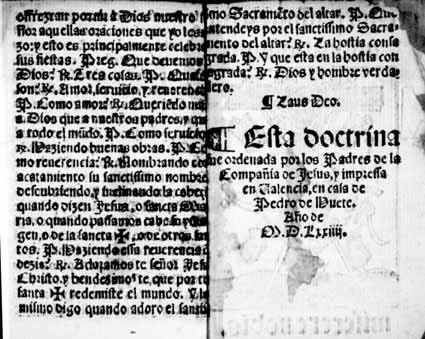 offrezcan por mi a Dios nuestro se
ñor aquellas oraciones que yo les re
zo: y esto es principalmente celebrar
sus fiestas. Preg. Que devemos
Dios? R. Tres cosas. P. Quales
son? R. Amor, seruicio, y reuerencia
P. Como amor? R. Queriẽdo mas
Dios que a nuestros padres, y que
a todo el mũdo. P. Como seruicio
R. Haziendo buenas obras. P. Co
mo reuerencia: R. Nombrando con
acatamiento su sanctissimo nombre
descubriendo, y inclinando la cabeça
quando dizen Jesus, o sancta Ma
ria, o quando passamos cabe su yma
gen, o de la sancta ✠, o de otros san
tos. P. Haziendo essa reuerencia q̃
dezis? R. Adoramos te señor Jesu
Christo, y bendezimos te, que por tu
santa ✠ redemiste el mundo. Y lo
mismo digo quando adoro el sanctis
mo Sacramẽto del altar. P. Que
entendeys por el sanctissimo Sacra
mento del altar? R. La hostia consa
grada. P. Y que esta en la hostia con
sagrada? R. Dios y hombre verda
dero.
¶ Laus Deo.
¶ Esta doctrina
fue ordenada por los Padres de la
Compañia de Jesus, y impressa
en Valencia, en casa de
Pedro de Huete.
Año de
M. D. Lxxiiij.